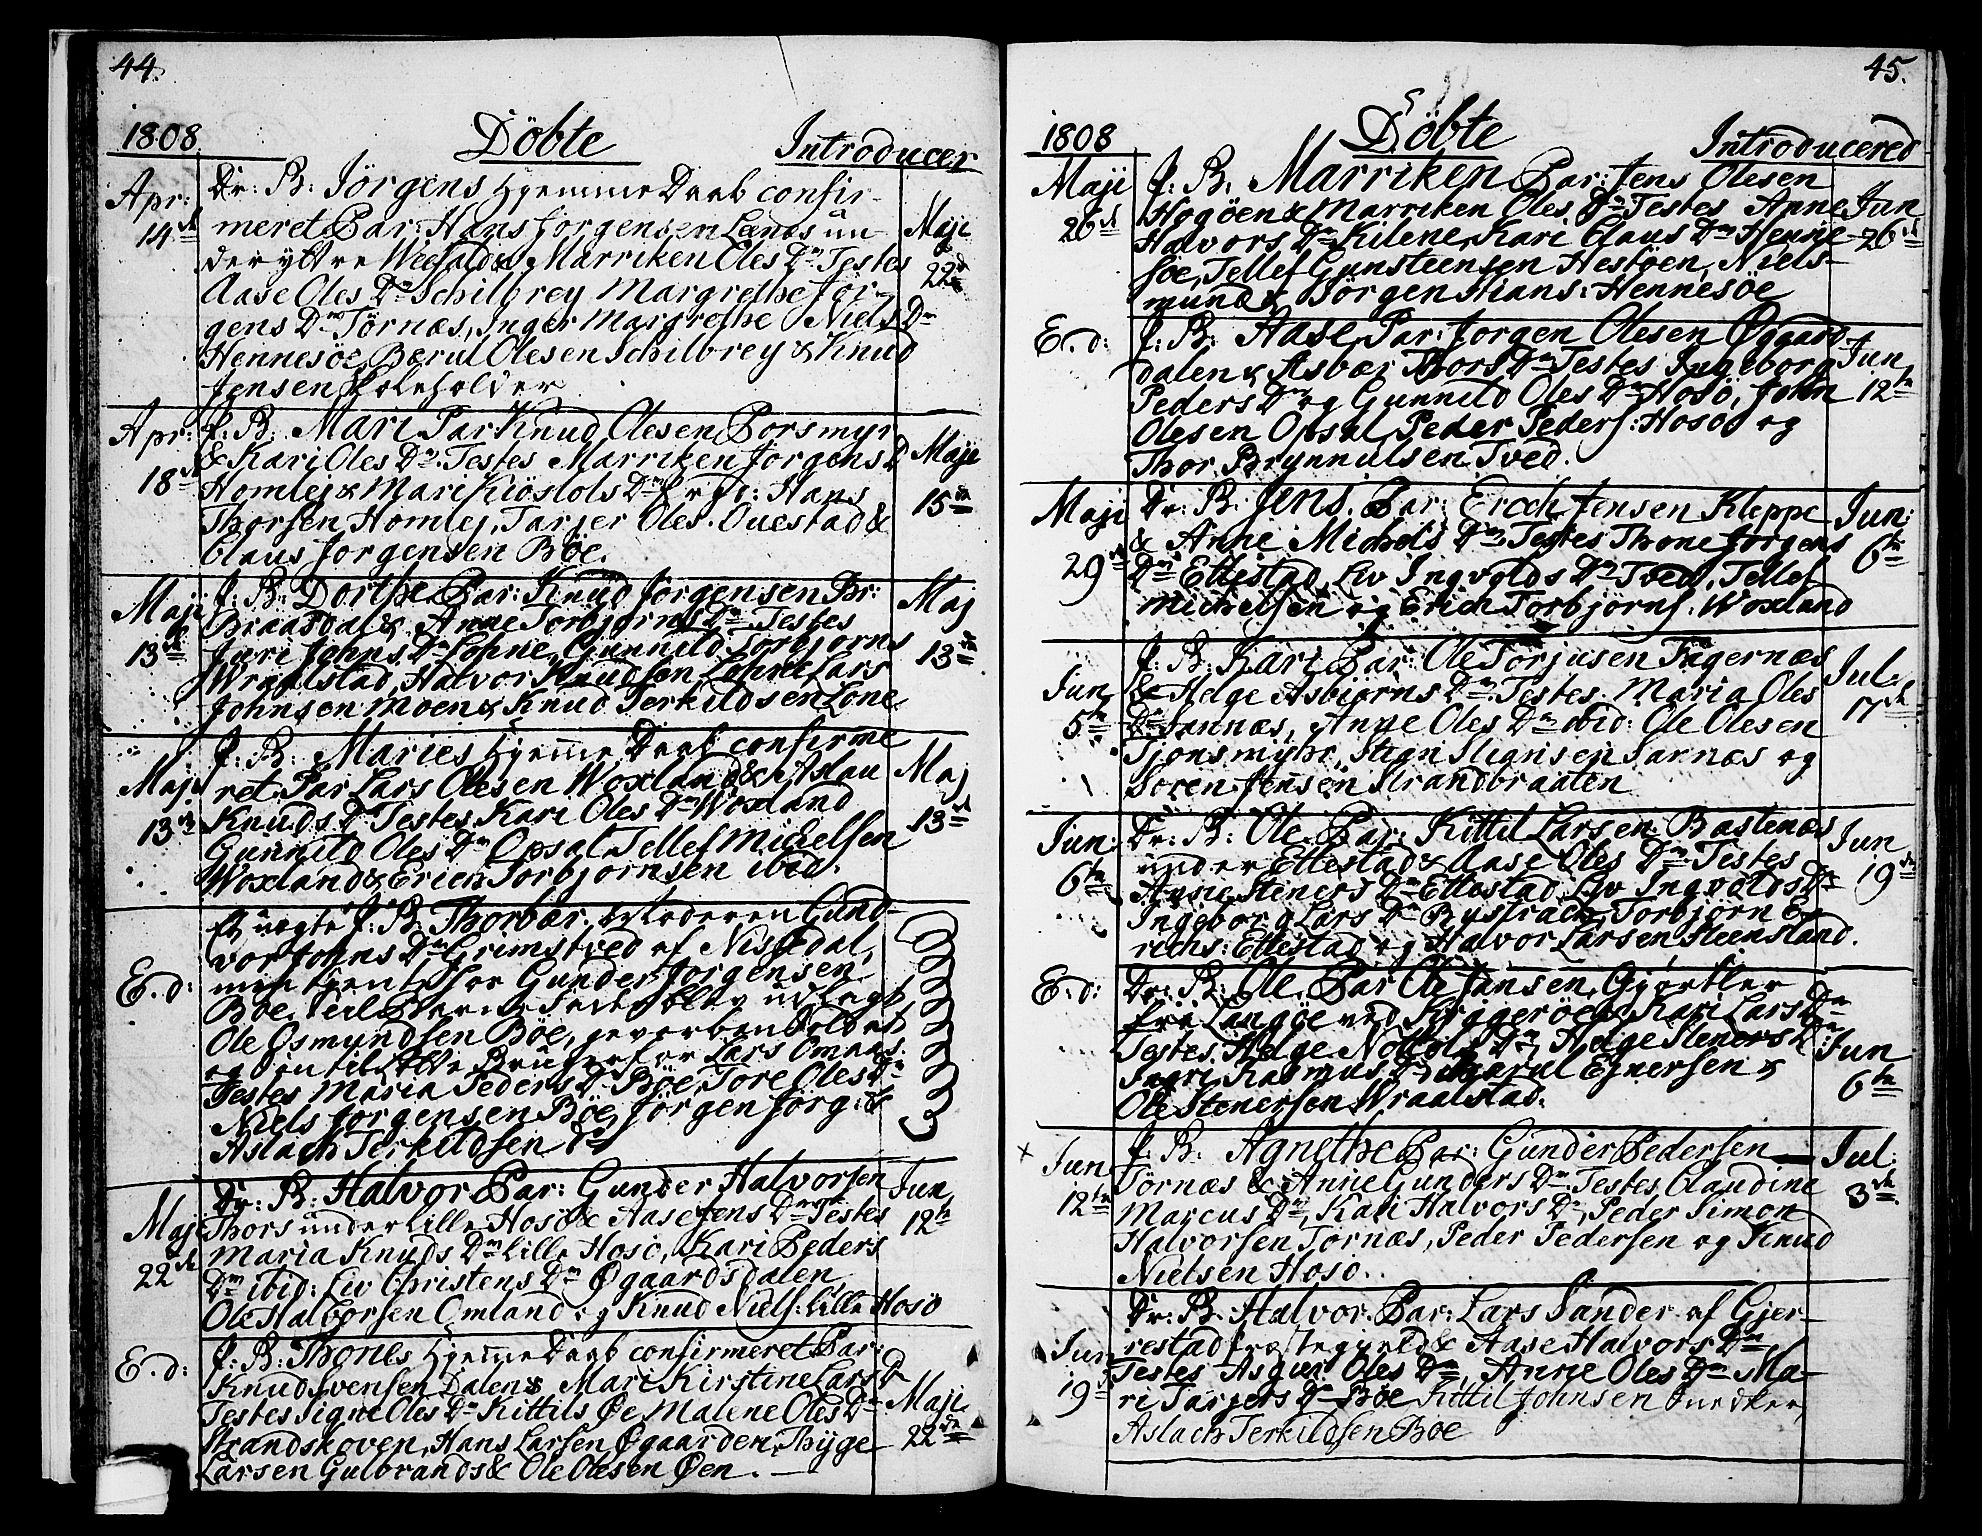 44.
1808 Döbte Introducer
Apr: 14de
Dr: B: Jörgens Hjemme Daab confir-
meret Par: Hans Jorgensen Lenæs un-
der yttre & Marriken Oles Dr Testes
Aase Oles Dr Schilbrey Margrethe Jör-
gens Dr Törnæs, Inger Margrethe Niels Dr
Hennesöe, Bærul Olesen Schilbrey & Knud
Jensen Skoleholder
Maji 22de
Apr: 18de
P: B: Mari Par Knud Olesen Porsmyr
& Kari Oles Dr. Testes Marriken Jorgens D
Homlej & Mari Kiöstols Dr Hans
Thorsen Homlej, Tarjer Oles. Ouestad &
Claus Jorgensen Böe.
Maji 15de
Maji 13de
P: B: Dorthe Par: Knud Jorgensen Br:
Braasdal & Anne Torbjorns Dr Testes
Juri Johns Dr Lohne, Gunnild Torbjorns
Wraalstad, Halvor Knudsen Lohne Lars
Johnsen Moen & Knud Terkildsen Lone
Maj 13de
Maji 13de
P: B: Maries Hjemme Daab confirme
ret Par Lars Olesen Woxland & Aslau
Knuds D Testes Kari Oles Dr Woxland
Gunnild Oles Dr Opsal Tellef Michelsen
Woxland & Erich Torbjornsen ibid.
Maj 13de
E. d:
Et uægte P: B: Thorbær: Moderen Gund-
vor Johns Dr Grimstved af Nissedal,
Gunder Jorgensen
Böe, til Barne Fader blev udlagt
Ole Osmundsen Böe, geworben Soldat
Lars Omaas:
Testes Maria Peders Dr Böe, Tore Oles Dr
Niels Jorgensen Böe, Jörgen Jorg: &
Aslach Terkildsen
Maji 22de
Dr: B: Halvor Par: Gunder Halvorsen
Thors under Lille Hosö & Aase Jens Dr Testes
Maria Knuds Dr Lille Hosö, Kari Peders
Dr ibid: Liv Christens Dr Øgaardsdalen,
Ole Halvorsen Omland og Knud Niels: Lille Hosö
Jun 12te
E. d:
P: B: Thones Hjemme Daab confirmeret Par:
Knud Svensen Dalen & Mari Kirstine Lars D
Testes Signe Oles Dr Kittils Øe Malene Oles Dr
Strandskoven, Hans Larsen Øgaarden, Thyge
Larsen Gulbrands & Ole Olesen Øen.
Maji 22de
45.
1808 Döbte Introducered
Maji 26de
P. B. Marriken Par: Jens Olesen
Hogöen & Marriken Oles Dr Testes Anne
Halvors Dr Kilene, Kari Claus Dr Henne-
söe, Tellef Gunsteensen Hestöen, Niels-
mund & Jörgen Hans: Hennesöe
Jun 26de
E. d:
P: B: Aase, Par: Jorgen Olesen Øgaard
dalen & Asbær Thors Dr Testes Ingeborg
Peders Dr og Gunnild Oles Dr Hosö, John
Olesen Opsal, Peder Peders: Hosöe og
Thor Brynnulsen Tved.
Jun 12te
Maji 29de
Dr: B: Jens. Par: Erich Jensen Kleppe
& Anne Michels Dr Testes Thone Jorgens
Dr Ettestad, Liv Ingvolds Dr Tved, Tellef
Michelsen og Erich Torbjörns: Woxland
Jun: 6te
Jun 5te
P: B: Kari Par: Ole Torjusen Fagernæs
& Helge Asbiörns Dr Testes. Maria Oles
Dr Sannæs, Anne Oles Dr ibid: Ole Olesen
Tjonsmyhr, Stign Stignsen Sannæs og
Soren Jensen Strandbraaten
Jul: 17de
Jun: 6te
Dr: B: Ole Par: Kittil Larsen Bastenæs
under Ettestad & Aase Oles Dr Testes
Anne Steners Dr Ettestad, Liv Ingvolds Dr
Ingeborg Lars Dr Torbjörn E-
richs: Ettestad og Halvor Larsen Steensland.
Jun 19de
E. d:
Dr: B: Ole, Par Ole Jansen, Gjörtler
fra Langöe ved Kraggeröe & Kari Lars Dr
Testes. Helge Dr, Helge Steners Dr
Ingri Rasmus Dr, Ejnersen &
Ole Stenersen Wraalstad.
Jun 6te
× Jun 12te
P. B: Agnethe Par: Gunder Pedersen
Törnæs & Anne Gunders Dr Testes Claudine
Marcus Dr, Kari Halvors Dr, Peder Simon
Halvorsen Törnæs, Peder Pedersen og Knud
Nielsen Hosö.
Jul: 3de
Jun 19de
Dr: B: Halvor. Par: Lars Sander af Gjer-
restad Præstegjeld & Aase Halvors Dr
Testes Asgier Oles Dr, Anne Oles Dr Ma-
ri Tarjers Dr Böe Kittil Johnsen Snedker,
Aslach Terkildsen Böe